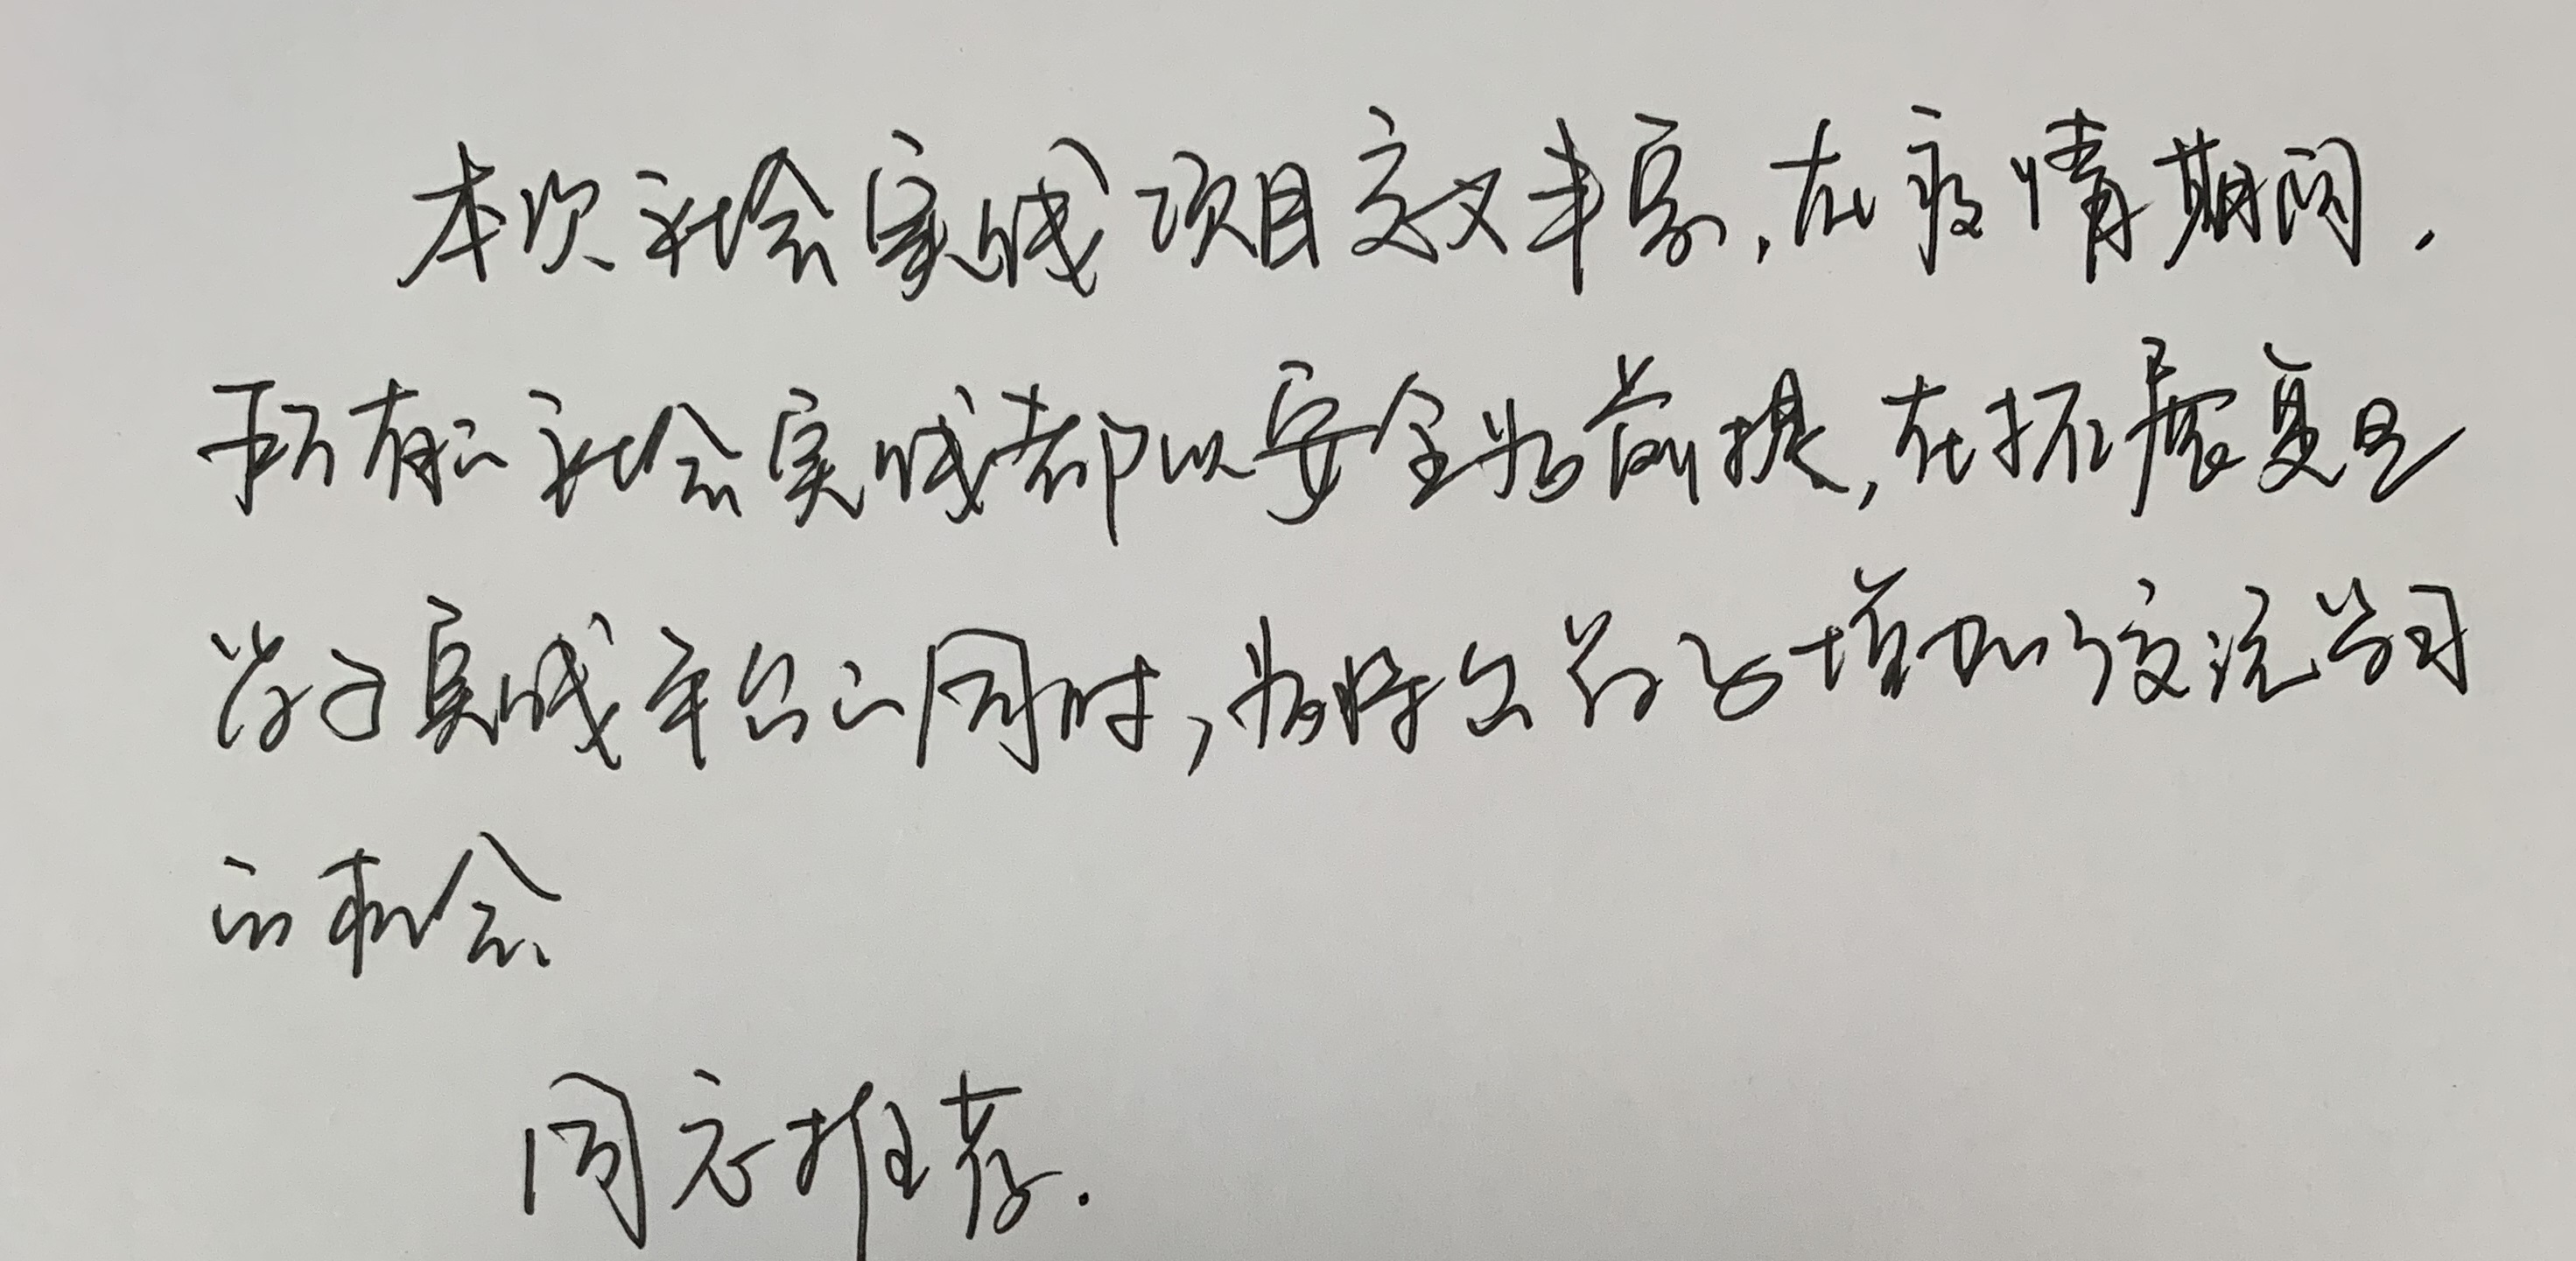 本次社会实践项目立意丰富,在疫情期间,
所有的社会实践都以安全为前提,在拓展复旦
学子实践平台的同时,为学子增加交流学习
的机会
同意推荐.